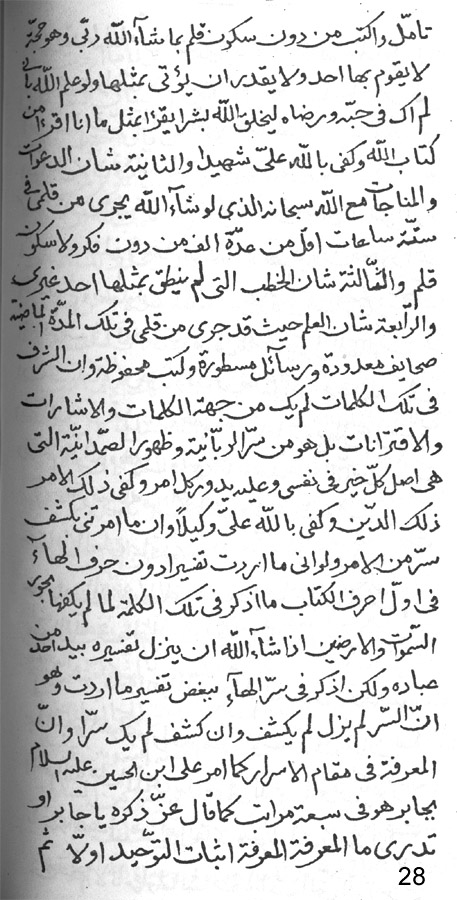 تامل واكتب من دون سكون قلم بما شاء الله ربّى وهو حجّة
لا يقوم بها احد ولا يقدر ان يؤتى بمثلها ولو علم الله بأنى
لم اك فى حبّه ورضاه ليخلق الله بشرا يقرء بمثل ما انا اقرء من
كتاب الله وكفى بالله علىّ شهيدا والثانية شان الدعوات
والمناجات مع الله سبحانه الذي لو شاء الله يجرى من قلمى فى
ستّة ساعات اول من عدّة الف من دون فكر ولا سكون
قلم والثّالثة شان الخطب التى لم ينطق بمثلها احد غيرى
والرّابعة شان العلم حيث قد جرى من قلمى فى تلك المدّة الماضية
صحايف معدودة ورسائل مسطورة وكتب محفوظة وان الشرف
فى تلك الكلمات لم يك من جهة الكلمات والاشارات
والاقترانات بل هو من سرّ الربّانية وظهور الصمدانيّة التى
هى اصل كلّ خير فى نفسى وعليه يدور كل امر وكفى ذلك الامر
ذلك الدّين وكفى بالله علىّ وكيلا وان ما امرتنى بكشف
سرّ من الامر ولو انى ما اردت تفسيرا دون حرف الهاء
فى اوّل احرف الكتاب ما اذكر فى تلك الكلمة لما لم يكفها بحور
السّموات والارضين اذا شاء الله ان ينزل تفسيره بيد احد من
عباده ولكن اذكر فى سرّ الهاء ببعض تفسير ما اردت وهو
انّ السّر لم يزل لم يكشف وان كشف لم يك سرّا وانّ
المعرفة فى مقام الاسرار كما امر على ابن الحسين عليه السلام
بجابر هو فى سبعة مراتب كما قال عزّ ذكره يا جابر او
تدرى ما المعرفة المعرفة اثبات التوحيد اولا ثم
28